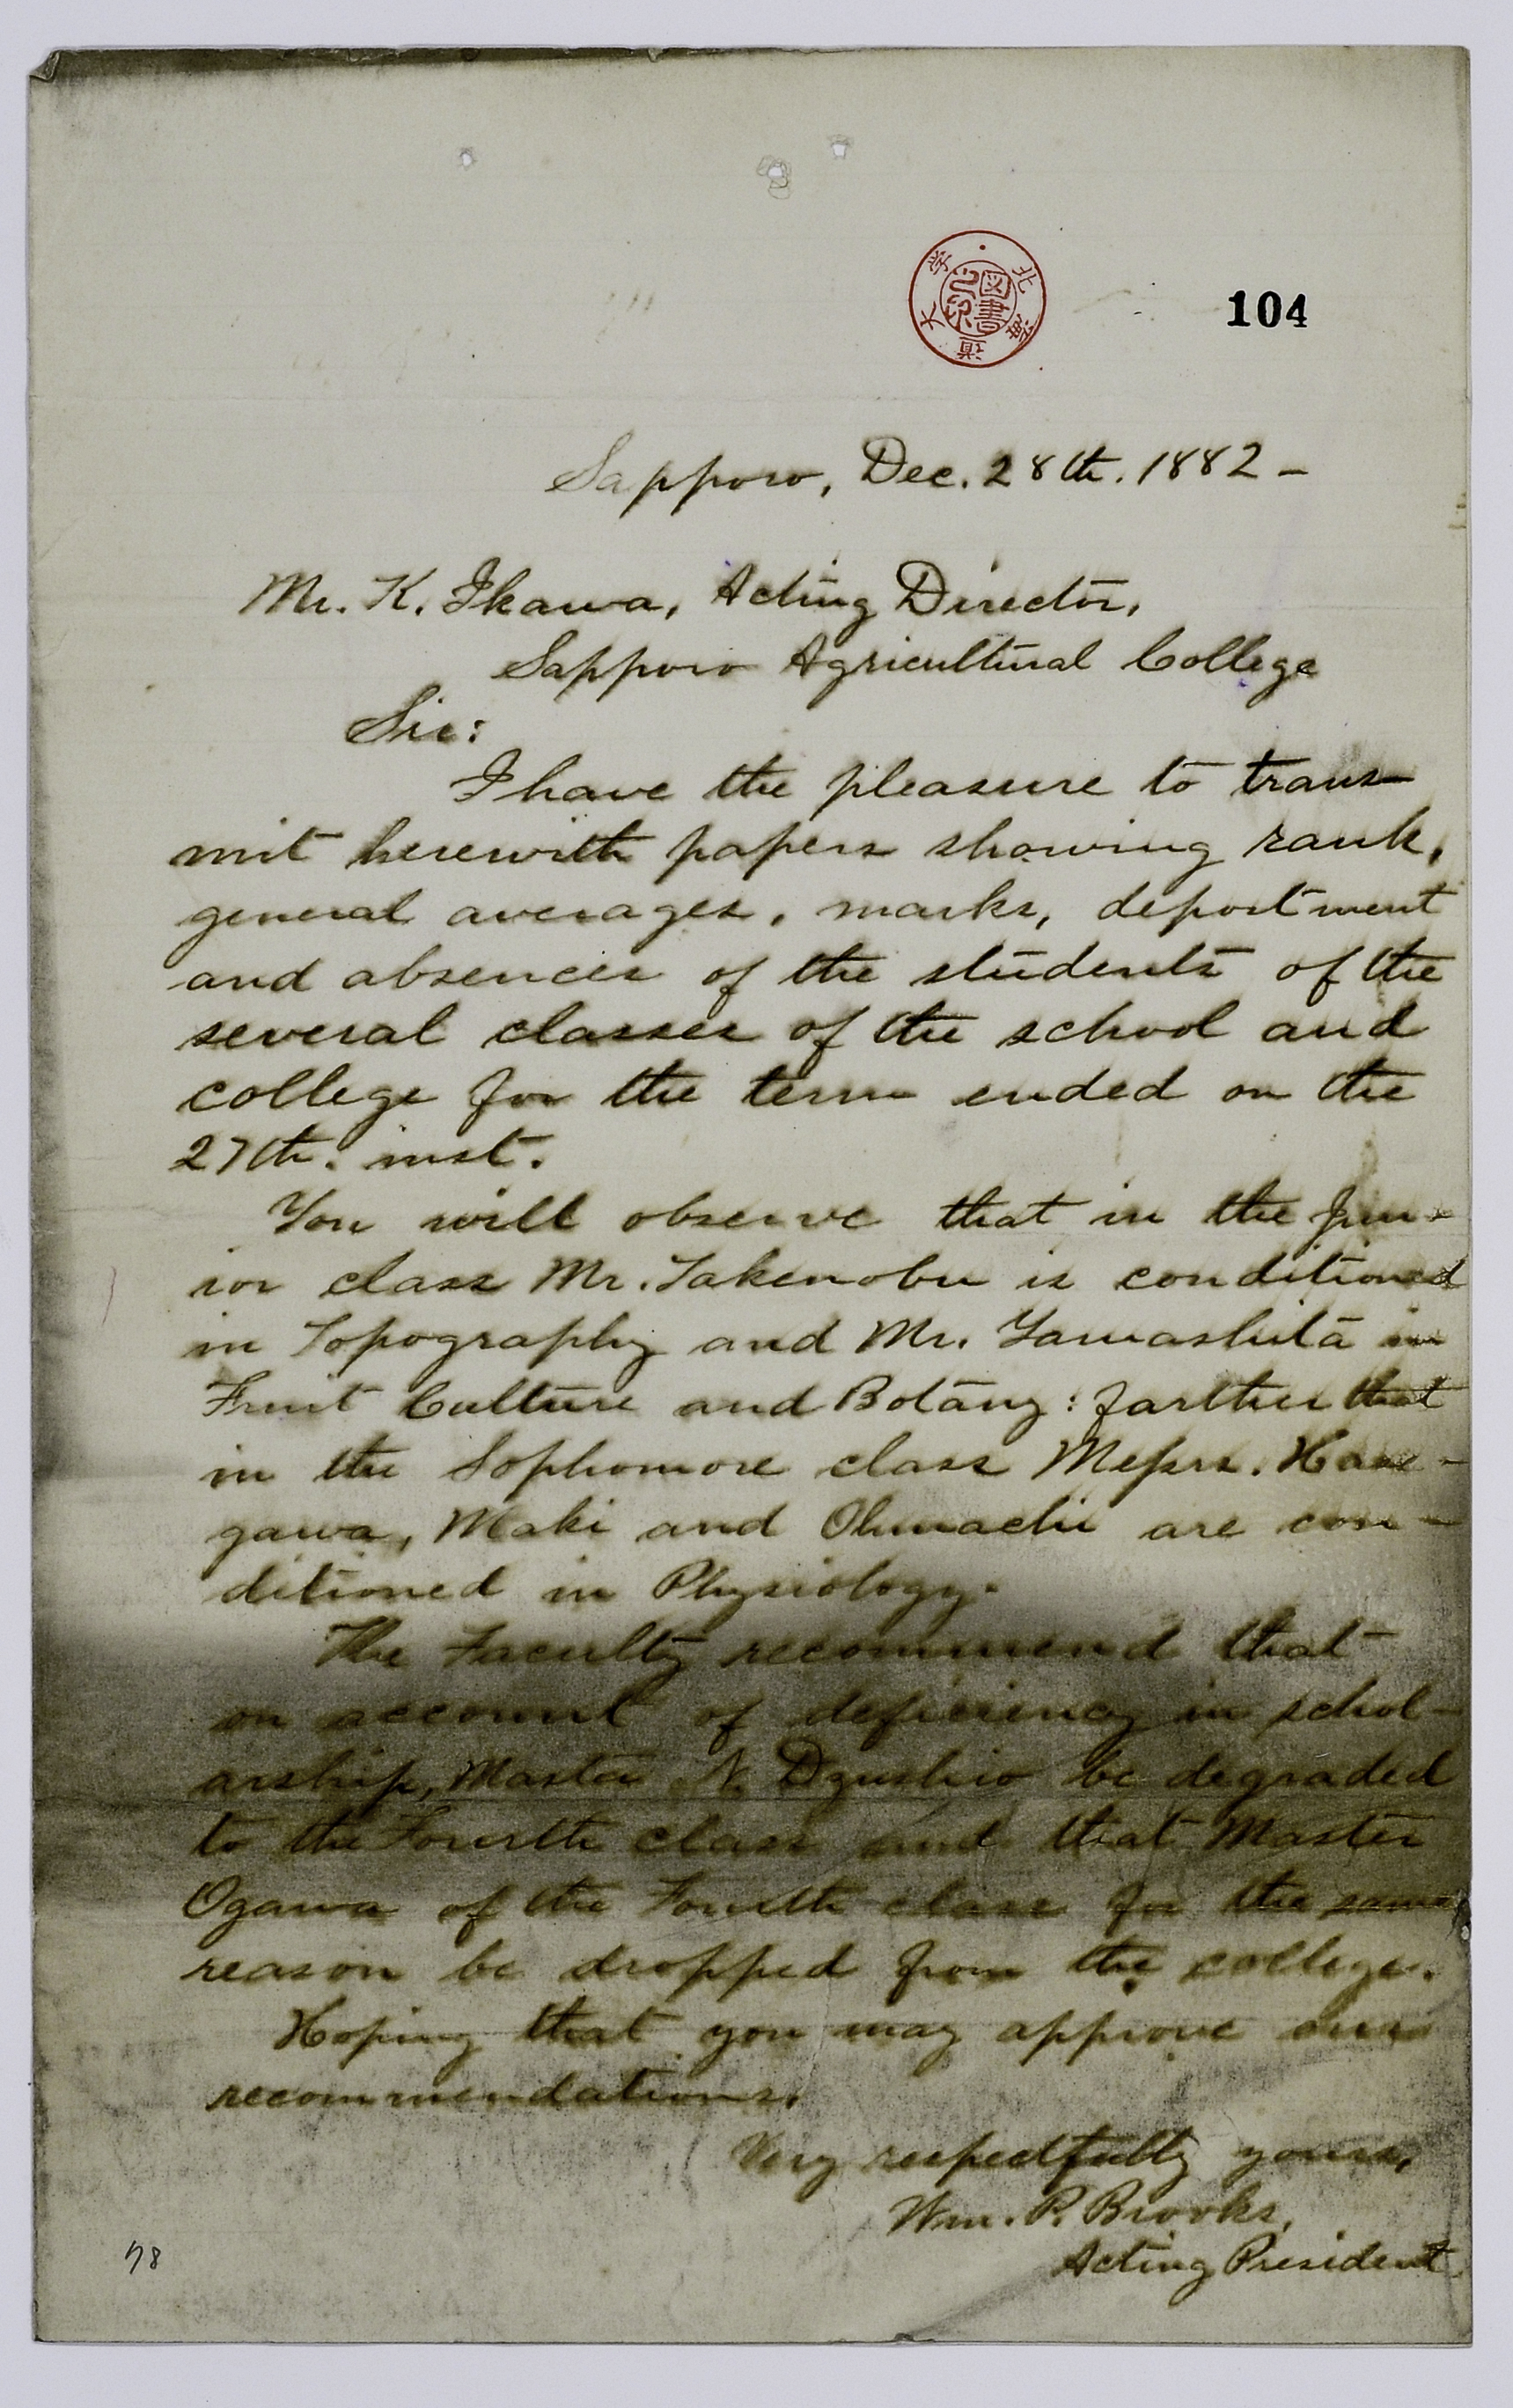 104
北海道大学
図書之印
Sapporo, Dec. 28th. 1882 -
Mr. K. Ikawa, Acting Director,
Sapporo Agricultural College
Sir:
I have the pleasure to trans-
mit herewith papers showing rank,
general averages, marks, deportment
and absences of the students of the
several classes of the school and
college for the term ended on the
27th. inst.
You will observe that in the Jun-
ior class Mr. Takenobu is conditioned
in Topography and Mr. Yamashita in
Fruit Culture and Botany: farther that
in the Sophomore class Messrs.
gawa, Maki and Ohmachi are con-
ditioned in Physiology.
The Faculty recommend that
on account of deficiency in schol-
arship, Master N. Dzushio be degraded
to the Fourth class and that Master
Ogawa of the Fourth class for the same
reason be dropped from the college.
Hoping that you may approve our
recommendations.
Very respectfully yours,
Wm. P. Brooks,
Acting President
78